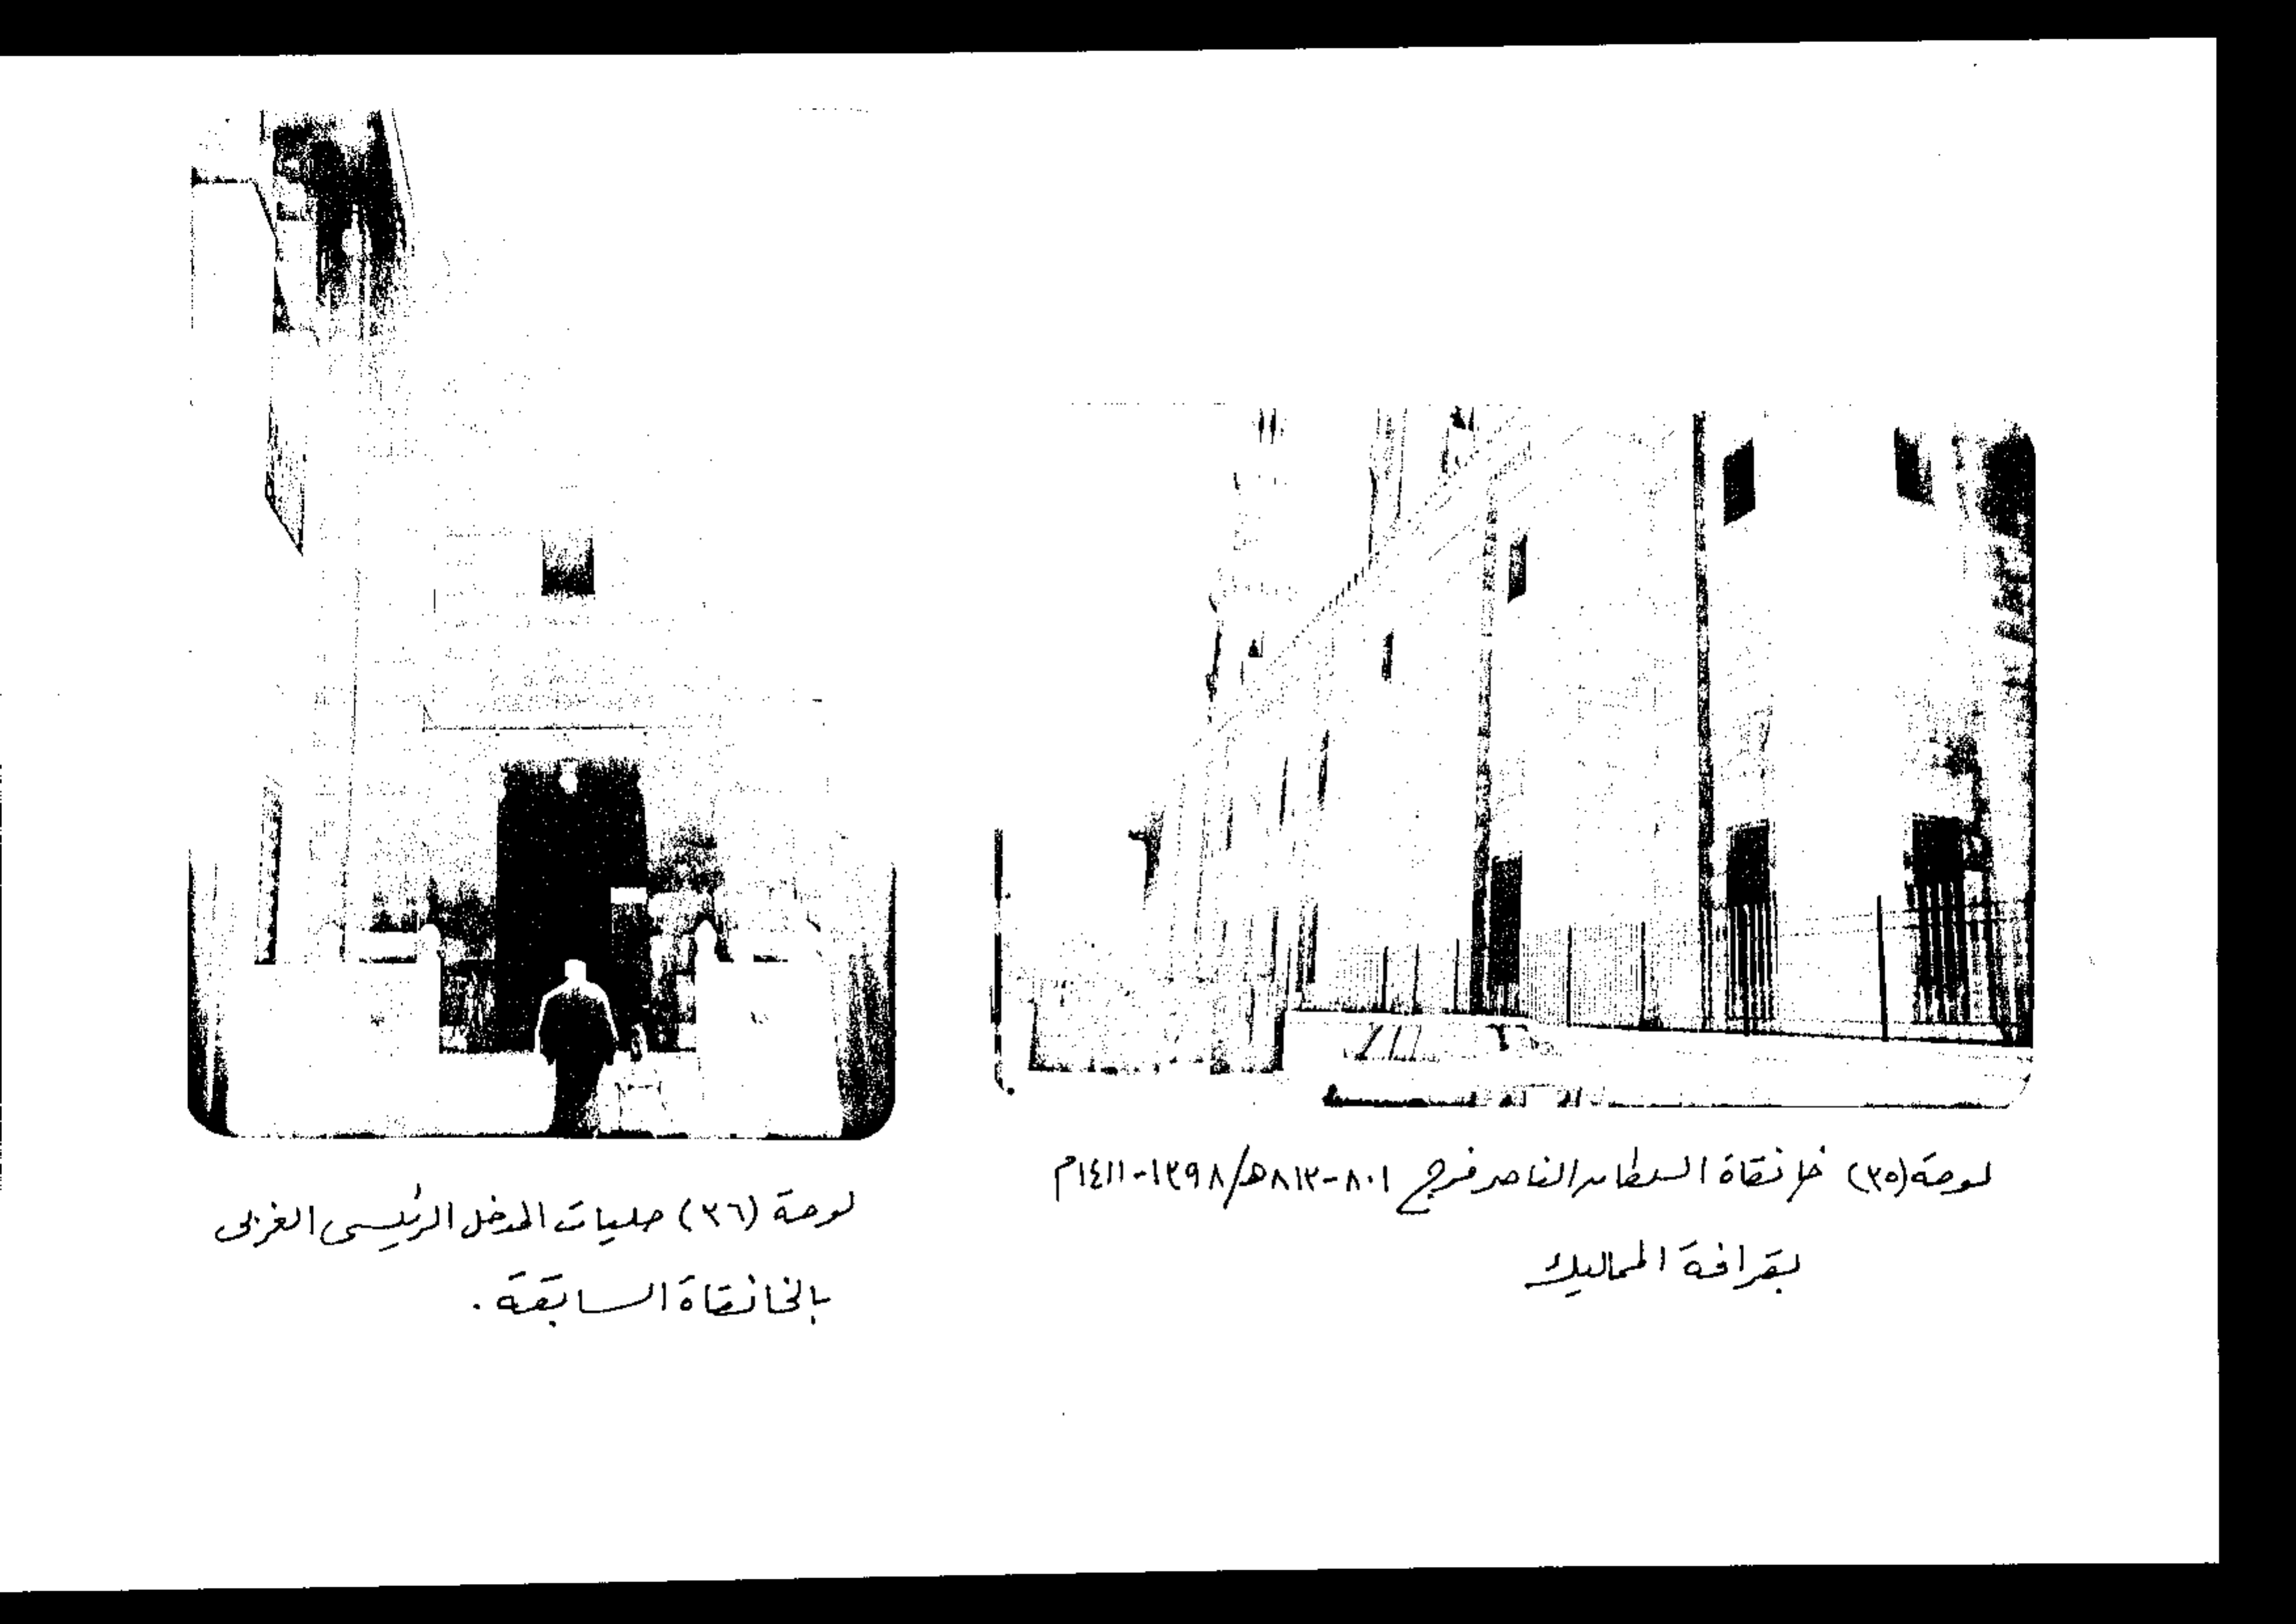 لوحة (٣٥) خانقاة السلطان الناصر فرج ٨٠١-٨١٣هـ/١٣٩٨-١٤١١م
بقرافة المماليك
لوحة (٣٦) حليات المدخل الرئيسى الغربى
بالخانقاة السابقة .